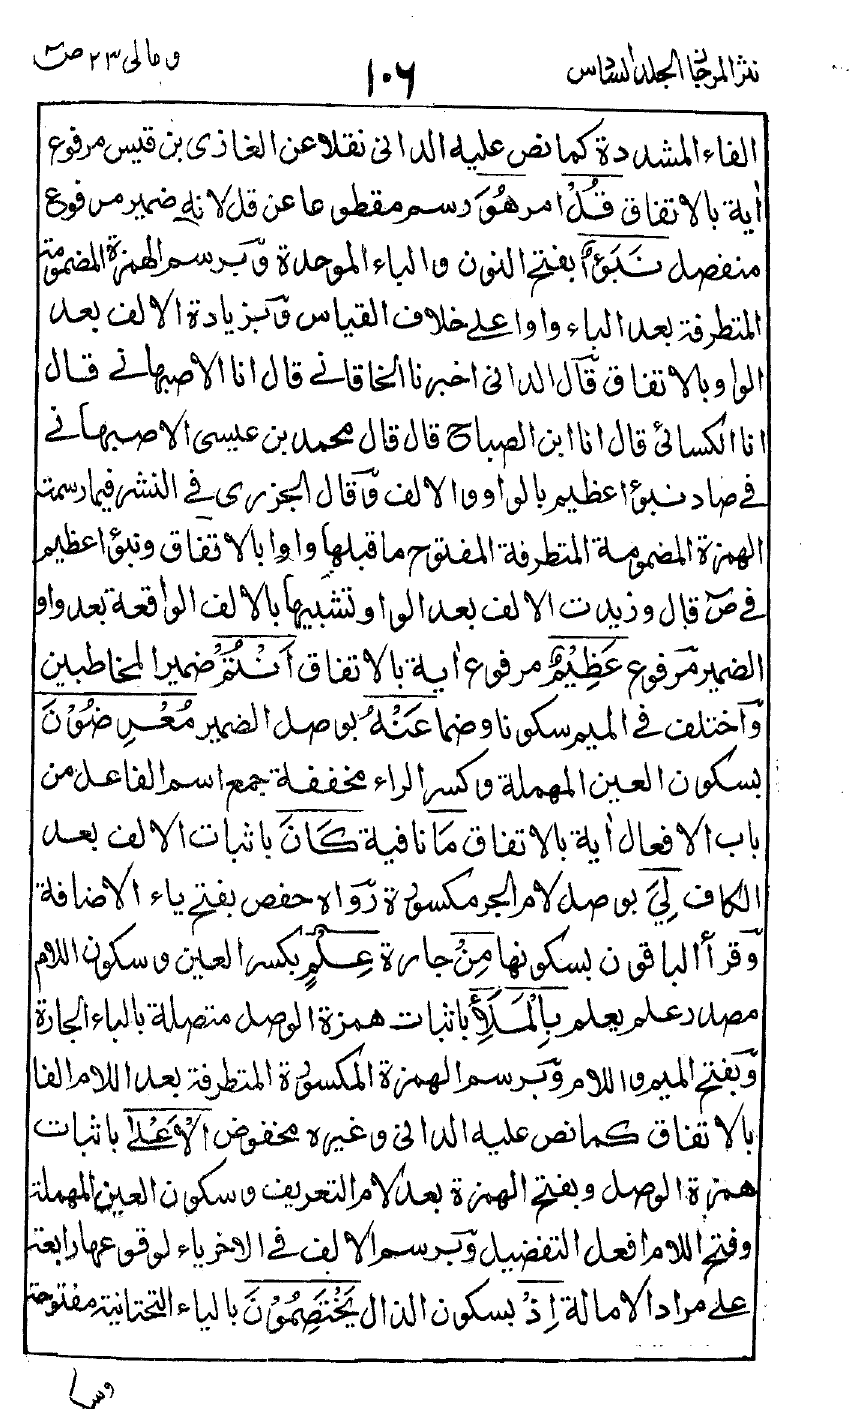 نثر المرجان الجلد السادس
١٠٦
ومالى ٢٣ صٓ
الفاء المشددة كما نص عليه الدانى نقلا عن الغازى بن قيس مرفوع
أية بالاتفاق قُلْ امر هُوَ رسم مقطوعا عن قل لانه ضمير مرفوع
منفصل نَبَؤٌا بفتح النون والباء الموحدة وبرسم الهمزة المضمومة
المتطرفة بعد الباء واوا على خلاف القياس وبزيادة الالف بعد
الواو بالاتفاق قال الدانى اخبرنا الخاقانے قال انا الاصبهانے قال
انا الكسائى قال انا ابن الصباح قال قال محمد بن عيسى الاصبهانے
فے صاد نبؤا عظيم بالواو والالف وقال الجزرى فے النشر فيما رسمت
الهمزة المضمومة المتطرفة المفتوح ما قبلها واوا بالاتفاق ونبؤا عظيم
فے صٓ قال وزيدت الالف بعد الواو تشبيها بالالف الواقعة بعد واو
الضمير مرفوع عَظِيْمٌ مرفوع أية بالاتفاق اَنْتُمْ ضمير المخاطبين
واختلف فے الميم سكونا وضما عَنْهُ بوصل الضمير مُعْرِضُوْنَ
بسكون العين المهملة وكسر الراء مخففة جمع اسم الفاعل من
باب الافعال أية بالاتفاق مَا نافية كَانَ باثبات الالف بعد
الكاف لِيَ بوصل لام الجر مكسورة رواه حفص بفتح ياء الاضافة
وقرأ الباقون بسكونها مِنْ جارة عِلْمٍ بكسر العين وسكون اللام
مصدر علم يعلم بِالْمَلَأِ باثبات همزة الوصل متصلة بالباء الجارة
وبفتح الميم واللام وبرسم الهمزة المكسورة المتطرفة بعد اللام الفا
بالاتفاق كما نص عليه الدانى وغيره مخفوض الْاَعْلٰى باثبات
همزة الوصل وبفتح الهمزة بعد لام التعريف وسكون العين المهملة
وفتح اللام افعل التفضيل وبرسم الالف فے الاخر ياء لوقوعها رابعة
على مراد الامالة اِذْ بسكون الذال يَخْتَصِمُوْنَ بالياء التحتانية مفتوحة